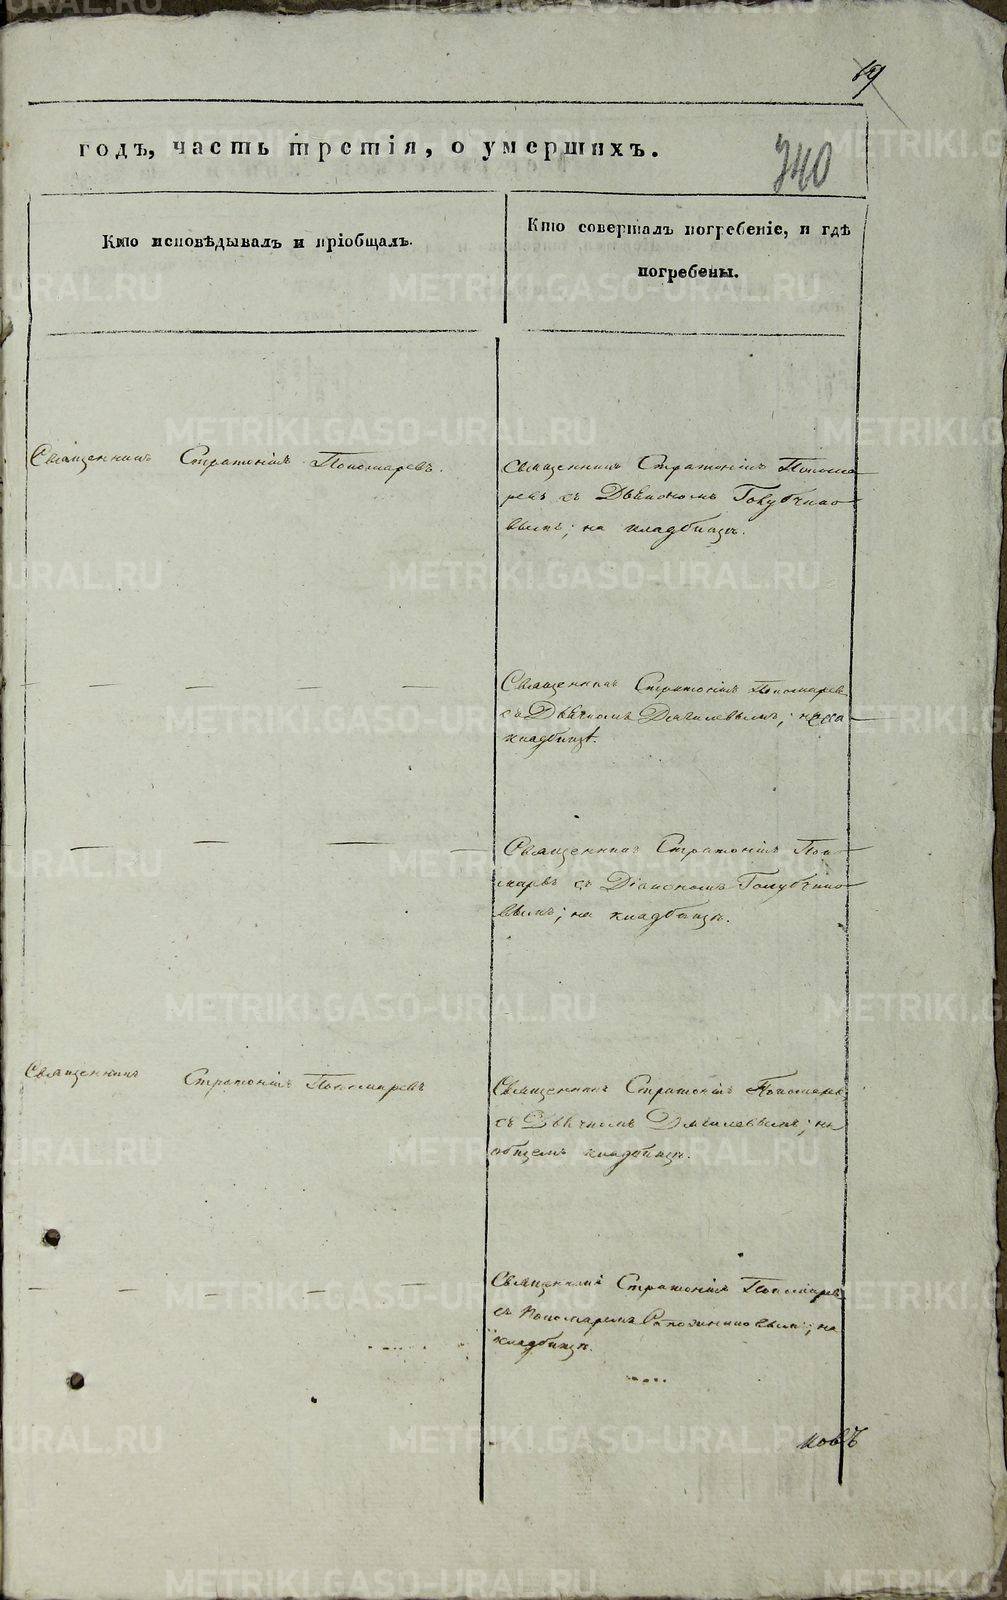 19
340
годъ, часть третія, о умершихъ.
Кто исповѣдывалъ и пріобщалъ.
Кто совершалъ погребеніе, и гдѣ
погребены.
Священникъ Стратоникъ Пономаревъ.
Священникъ Стратоникъ Понома
ревъ съ Дьякономъ Голубчико
вымъ; на кладбищѣ.
Священникъ Стратоникъ Пономарев
съ Дьячкомъ
кладбищѣ.
Священникъ Стратоникъ Поно
маревъ съ Діакономъ Голубчико
вымъ; на кладбищѣ.
Священникъ Стратоникъ Пономаревъ
Священникъ Стратоникъ Пономаревъ
съ Дьячкомъ на
общемъ кладбищѣ.
Священникъ Стратоникъ Пономарев
съ Пономаремъ на
кладбищѣ.
ковъ
METRIKI.GASO-URAL.RU